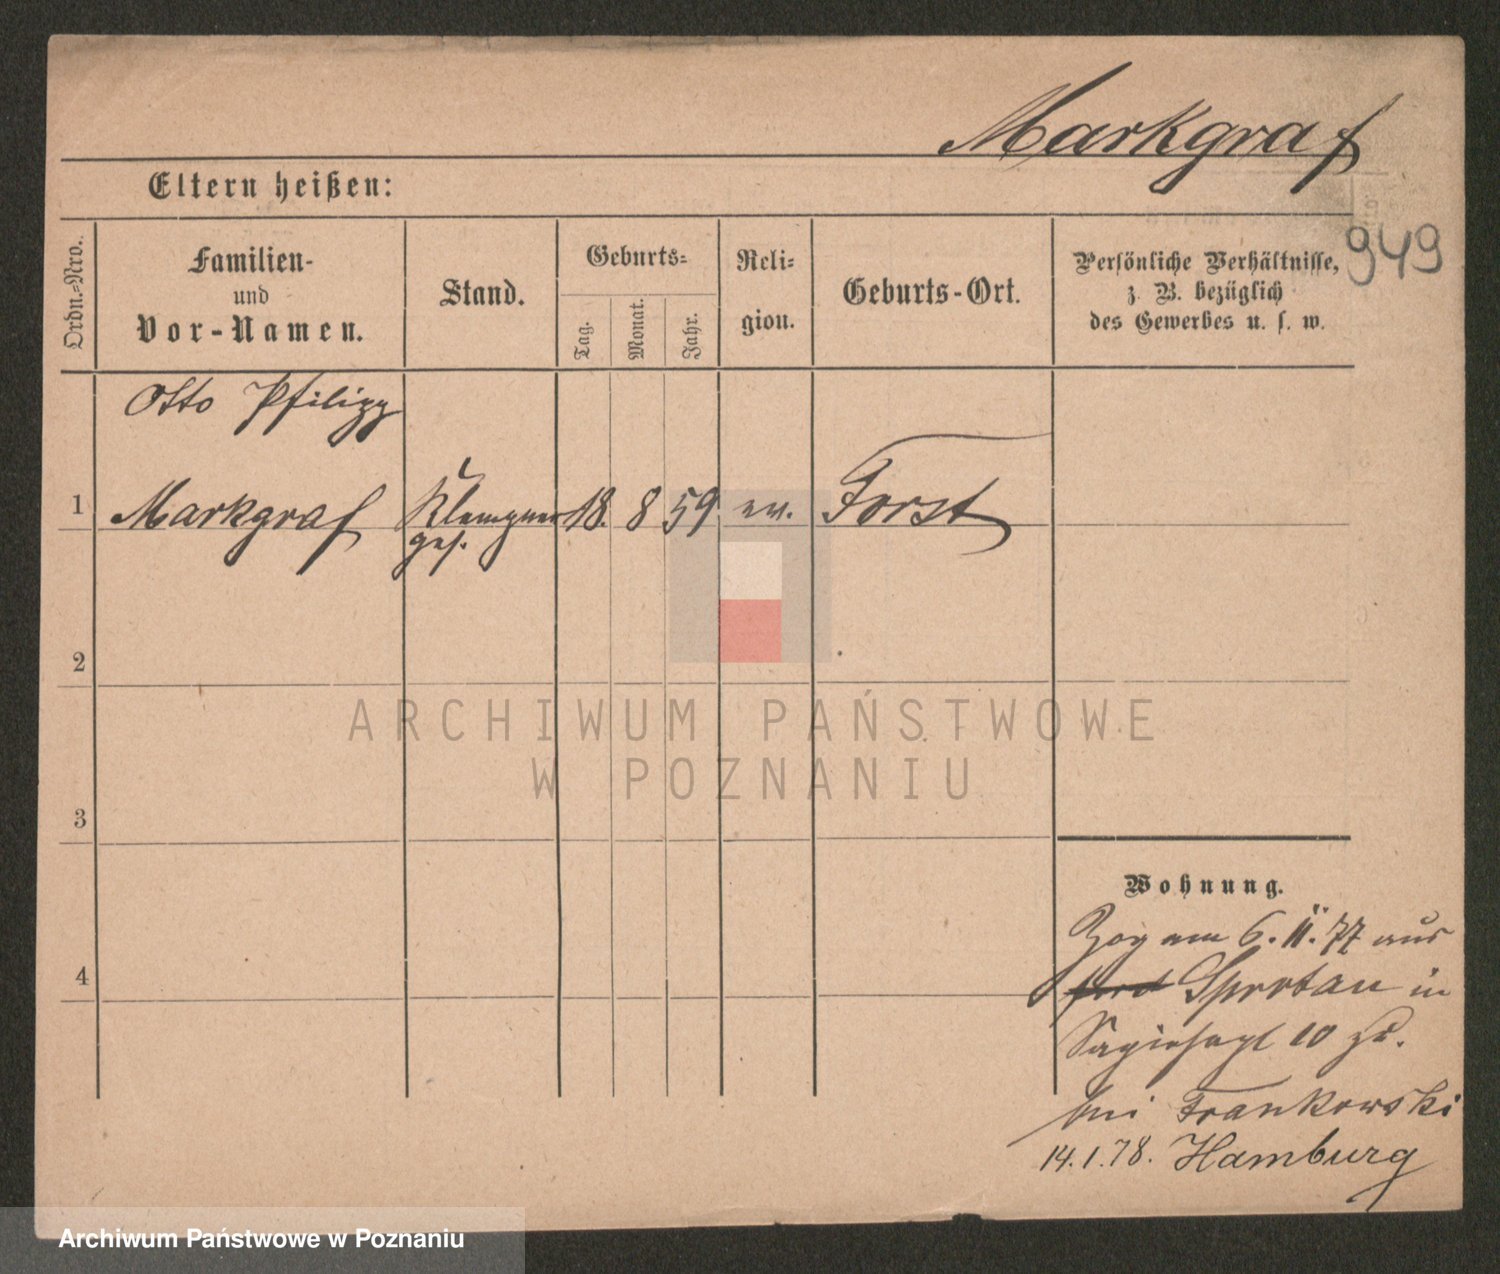 Markgraf
Eltern heißen:
949
Ordn.-Nro.
Familien-
und
Vor-Namen.
Stand.
Geburts-
Tag.
Monat.
Jahr.
Reli-
gion.
Geburts-Ort.
Persönliche Verhältnisse,
z. B. bezüglich
des Gewerbes u. s. w.
Otto Philipp
1 Markgraf Klempner 18. 8 59 ev. Forst
ges.
2
3
4
ARCHIWUM PAŃSTWOWE
W POZNANIU
Wohnung.
Zog am 6. 11. 77 aus
Sprottau in
10 zu.
bei Frankowski
14.1.78. Hamburg
Archiwum Państwowe w Poznaniu